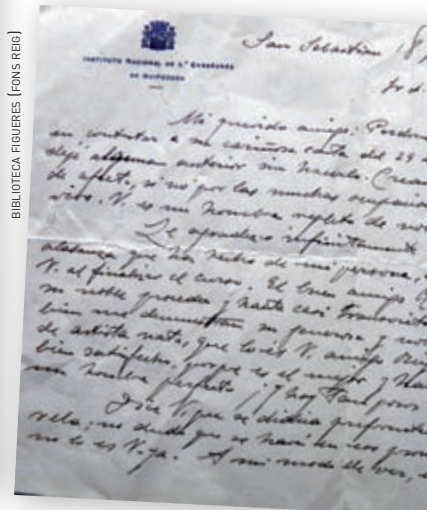 BIBLIOTECA FIGUERES (FONS REIG)
INSTITUTO NACIONAL DE 2.ª ENSEÑANZA
DE GUIPÚZCOA
San Sebastian, 18
Mi querido amigo: Perdon
en contestar a su cariñosa carta del 29 d
dejé alguna anterior sin hacerlo. Crea
de afecto, si no por las muchas ocupacion
vivo. V. es un hombre repleto de
Le agradezco infinitamente
alabanza que ha hecho de mi persona,
V. al finalizar el curso. El buen amigo
su noble proceder y hasta casi
bien me demuestran su generosa y
de artista nato, que lo es V. amigo
bien satisfecho, porque es el mejor y
un hombre perfecto ¡Y hay tan pocos
Dice V. que se dedica
no dudo que se hará en eso
no lo es V. ya. A mi modo de ver,